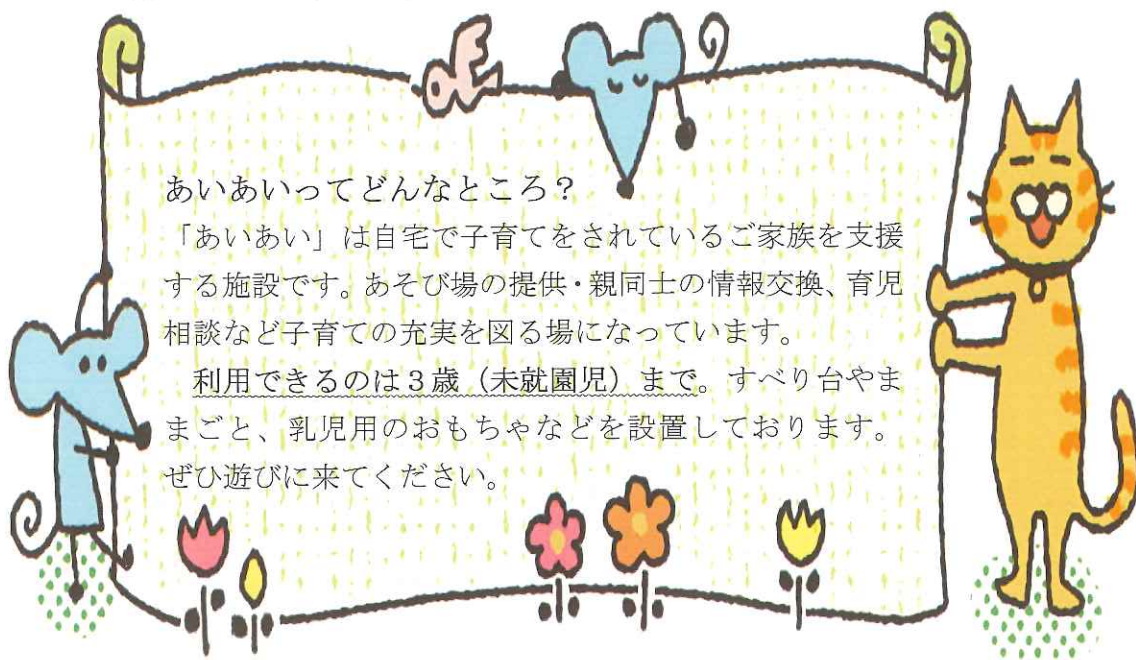 あいあいってどんなところ?
「あいあい」は自宅で子育てをされているご家族を支援
する施設です。あそび場の提供・親同士の情報交換、育児
相談など子育ての充実を図る場になっています。
利用できるのは3歳（未就園児）まで。すべり台やま
まごと、乳児用のおもちゃなどを設置しております。
ぜひ遊びに来てください。